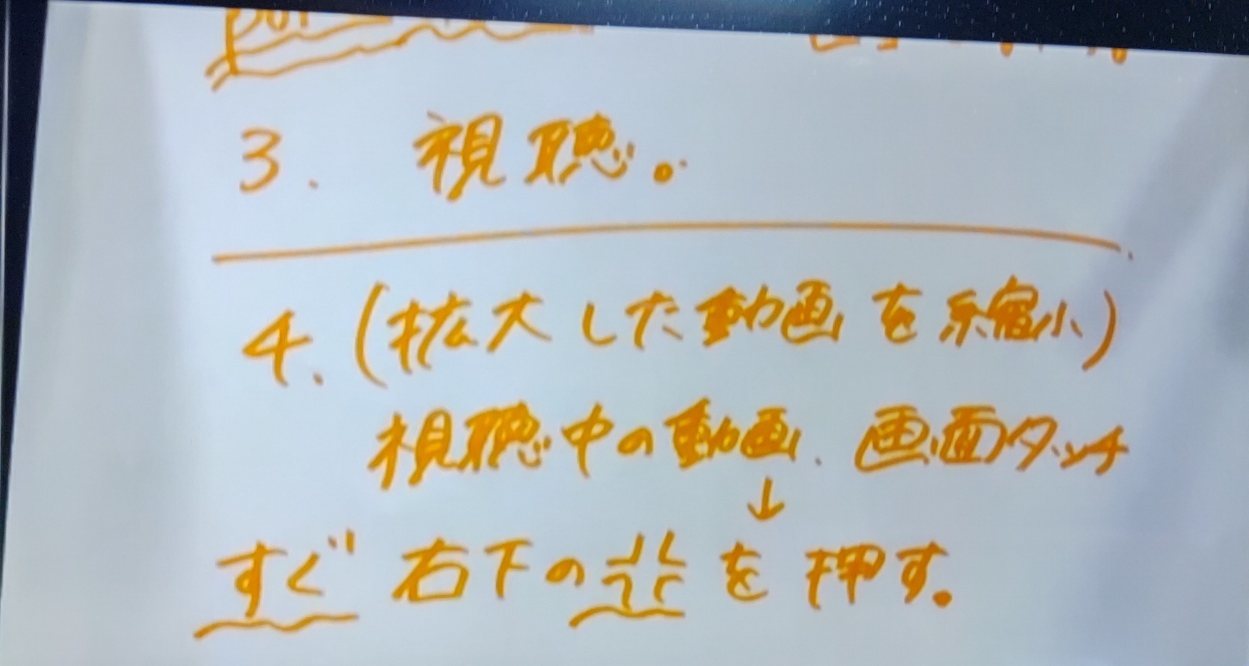 3. 視聴。
4. (拡大した動画を縮小)
視聴中の動画、画面タッチ
↓
すぐ右下の を押す。